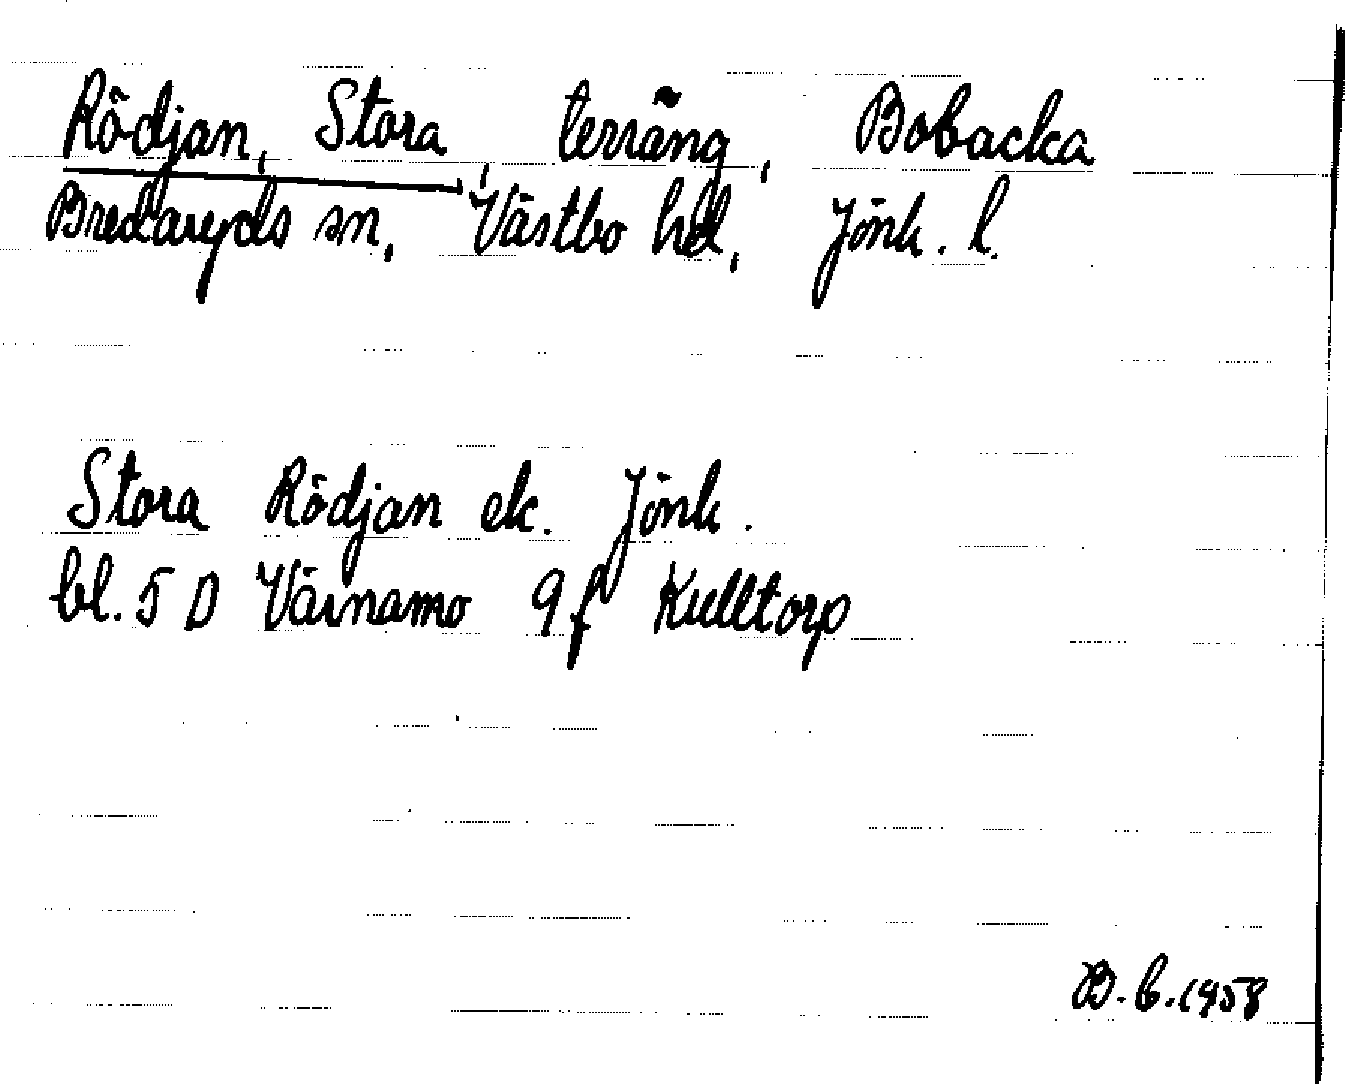 Rödjan, Stora, terräng, Bobacka
Bredaryds sn, Västbo hd, Jönk. l.
Stora Rödjan ek. Jönk.
bl. 5 D Värnamo 9 f Kulltorp
B. b. 1958